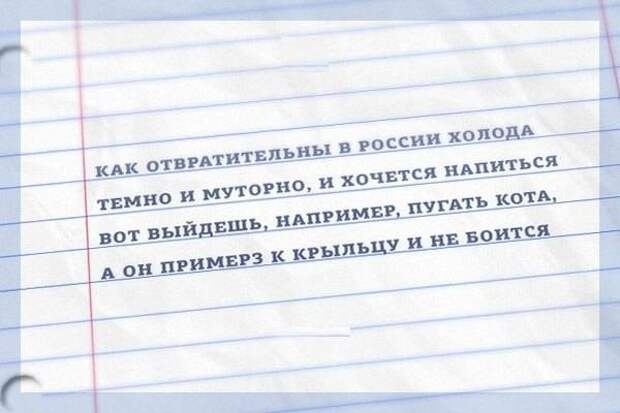 КАК ОТВРАТИТЕЛЬНЫ В РОССИИ ХОЛОДА
ТЕМНО И МУТОРНО, И ХОЧЕТСЯ НАПИТЬСЯ
ВОТ ВЫЙДЕШЬ, НАПРИМЕР, ПУГАТЬ КОТА,
А ОН ПРИМЕРЗ К КРЫЛЬЦУ И НЕ БОИТСЯ